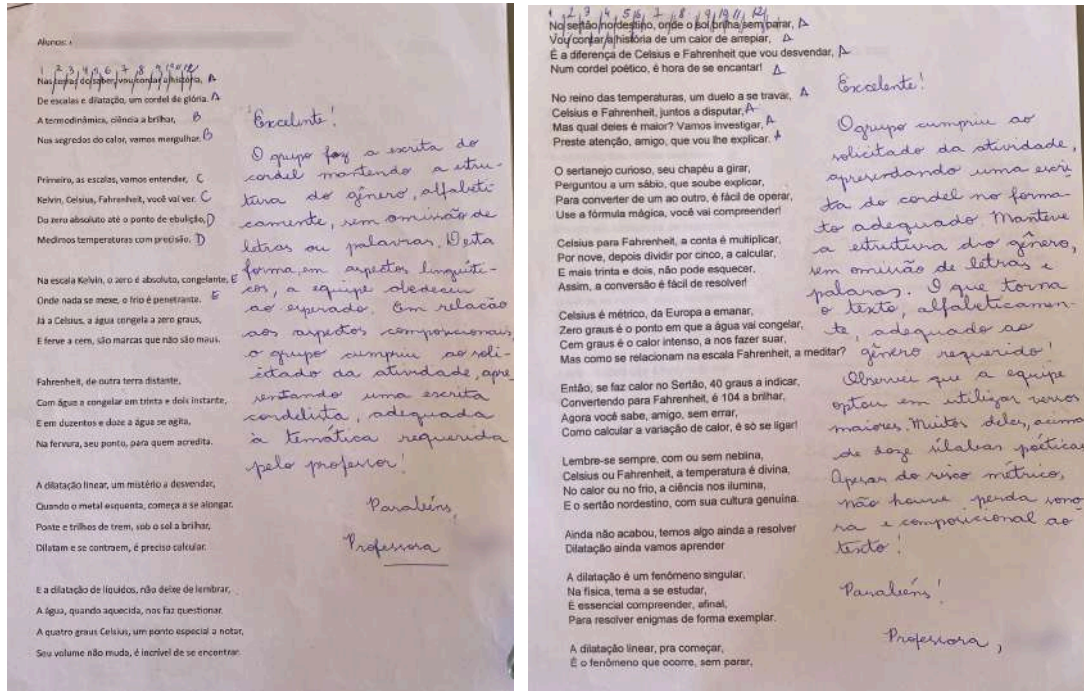 Alunos:
1 2 3 4 5 6 7 8 9 10 11 12
Nas terras do saber, vou contar a história, A
De escalas e dilatação, um cordel de glória. A
A termodinâmica, ciência a brilhar, B
Nos segredos do calor, vamos mergulhar. B
Primeiro, as escalas, vamos entender, C
Kelvin, Celsius, Fahrenheit, você vai ver. C
Do zero absoluto até o ponto de ebulição, D
Medimos temperaturas com precisão. D
Na escala Kelvin, o zero é absoluto, congelante, E
Onde nada se mexe, o frio é penetrante. E
Já a Celsius, a água congela a zero graus,
E ferve a cem, são marcas que não são maus.
Fahrenheit, de outra terra distante,
Com água a congelar em trinta e dois instante,
E em duzentos e doze a água se agita,
Na fervura, seu ponto, para quem acredita.
A dilatação linear, um mistério a desvendar,
Quando o metal esquenta, começa a se alongar.
Ponte e trilhos de trem, sob o sol a brilhar,
Dilatam e se contraem, é preciso calcular.
E a dilatação de líquidos, não deixe de lembrar,
A água, quando aquecida, nos faz questionar.
A quatro graus Celsius, um ponto especial a notar,
Seu volume não muda, é incrível de se encontrar.
Excelente!
O grupo fez a escrita do
cordel mantendo a estru-
tura do gênero, alfabeti-
camente, sem omissão de
letras ou palavras. Desta
forma, em aspectos linguísti-
cos, a equipe obedeceu
ao esperado. Em relação
aos aspectos composicionais,
o grupo cumpriu ao soli-
citado da atividade, apre-
sentando uma escrita
cordelista, adequada
à temática requerida
pelo professor!
Parabéns,
Professora
1 2 3 4 5 6 7 8 9 10 11 12
No sertão nordestino, onde o sol brilha sem parar, A
Vou contar a história de um calor de arrepiar, A
É a diferença de Celsius e Fahrenheit que vou desvendar, A
Num cordel poético, é hora de se encantar! A
No reino das temperaturas, um duelo a se travar, A
Celsius e Fahrenheit, juntos a disputar, A
Mas qual deles é maior? Vamos investigar, A
Preste atenção, amigo, que vou lhe explicar. A
O sertanejo curioso, seu chapéu a girar,
Perguntou a um sábio, que soube explicar,
Para converter de um ao outro, é fácil de operar,
Use a fórmula mágica, você vai compreender!
Celsius para Fahrenheit, a conta é multiplicar,
Por nove, depois dividir por cinco, a calcular,
E mais trinta e dois, não pode esquecer,
Assim, a conversão é fácil de resolver!
Celsius é métrico, da Europa a emanar,
Zero graus é o ponto em que a água vai congelar,
Cem graus é o calor intenso, a nos fazer suar,
Mas como se relacionam na escala Fahrenheit, a meditar?
Então, se faz calor no Sertão, 40 graus a indicar,
Convertendo para Fahrenheit, é 104 a brilhar,
Agora você sabe, amigo, sem errar,
Como calcular a variação de calor, é só se ligar!
Lembre-se sempre, com ou sem neblina,
Celsius ou Fahrenheit, a temperatura é divina,
No calor ou no frio, a ciência nos ilumina,
E o sertão nordestino, com sua cultura genuína.
Ainda não acabou, temos algo ainda a resolver
Dilatação ainda vamos aprender
A dilatação é um fenômeno singular,
Na física, tema a se estudar,
É essencial compreender, afinal,
Para resolver enigmas de forma exemplar.
A dilatação linear, pra começar,
É o fenômeno que ocorre, sem parar,
Excelente!
O grupo cumpriu ao
solicitado da atividade,
apresentando uma escri-
ta do cordel no forma-
to adequado. Manteve
a estrutura do gênero,
sem omissão de letras e
palavras. O que torna
o texto, alfabeticamen-
te, adequado ao
gênero requerido!
Observei que a equipe
optou em utilizar versos
maiores. Muitos deles, acima
de doze sílabas poéticas.
Apesar do risco métrico,
não houve perda sono-
ra e composicional ao
texto!
Parabéns!
Professora,